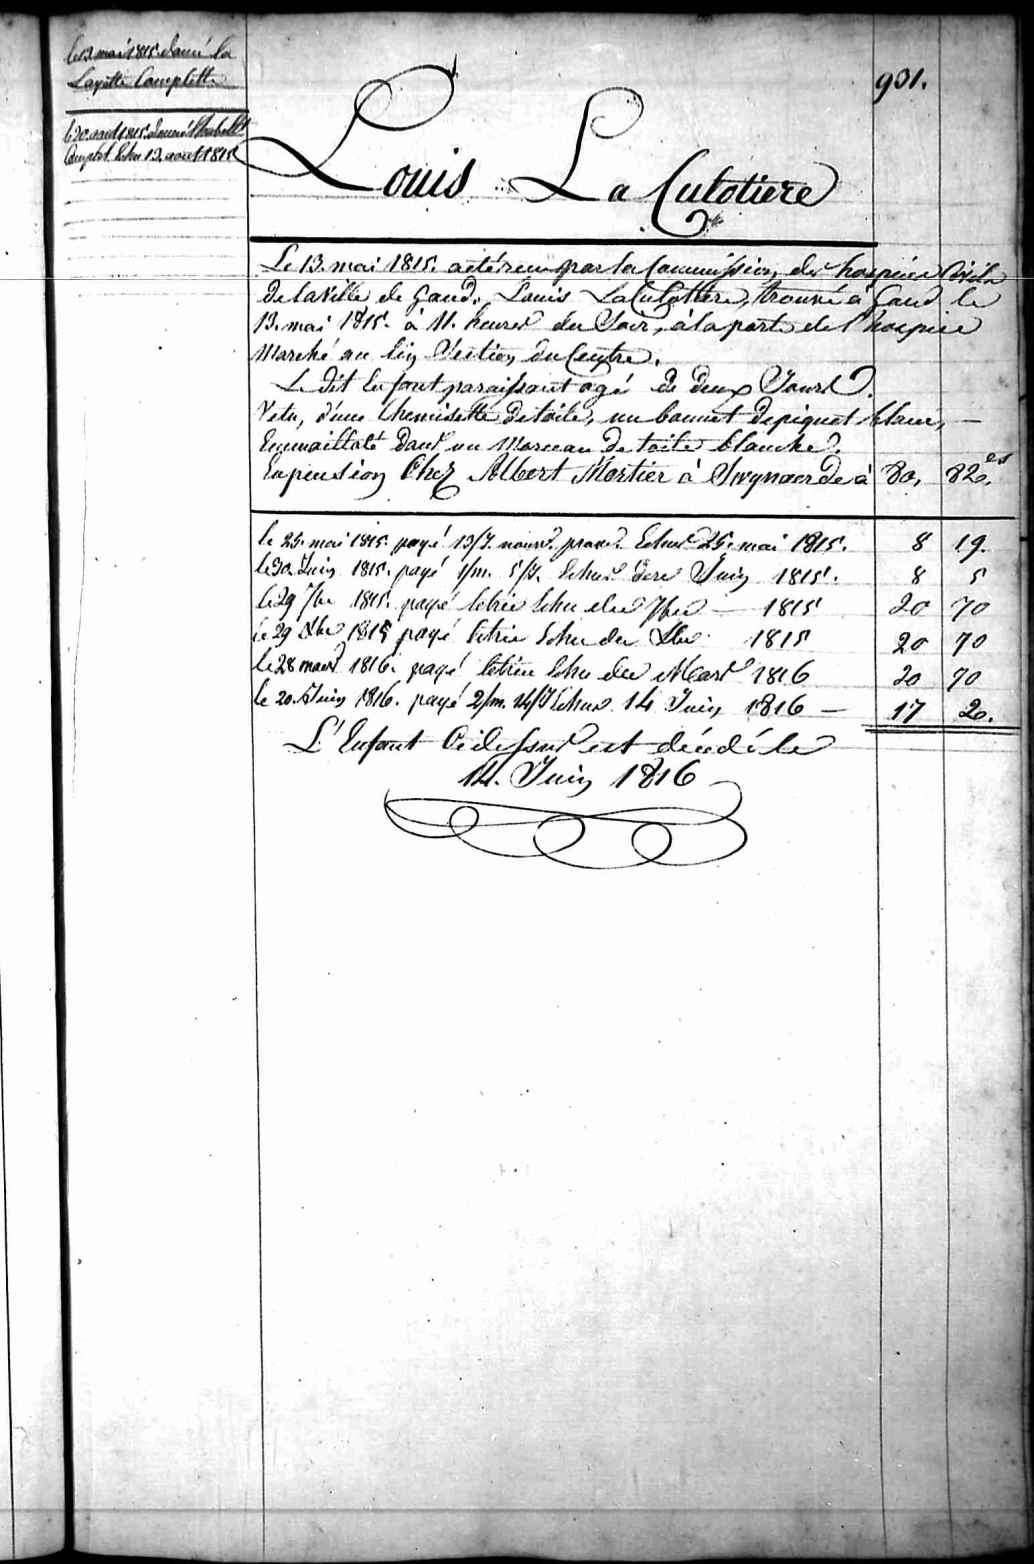 le 13 mai 1815 donné la
Layette Complette
le 20 aout 1815 donné
Complet Echu 13 aout 1815
901.
Louis La Culotiere
Le 13. mai 1815. a été recu par la Commission des hospices Civils
De la Ville de Gand, Louis La Culottiere, trouvé à Gand le
13. mai 1815. à 11. heures du Soir, à la porte de l'hospice
Marché au lin Section du Centre.
Le dit Enfant paraissant agé de deux Jours.
Vetu, d'une Chemisette de toile, un bonnet de piquet blanc, —
Emmailloté dans un Morceau de toile blanche.
En pension Chez Albert Mortier à Swynaerde à 80. 82 es.
le 25. mai 1815. payé 13/J. nourr. Echus 25. mai 1815. 8 19.
le 30 Juin 1815. payé 1/m. 5/J. Echus Juin 1815. 8 5
le 29 7bre 1815. payé letrée Echu du 7bre — 1815 20 70
le 29 Xbre 1815 payé letrée Echu du Xbre 1815 20 70
le 28 mars 1816. payé letrée Echu du Mars 1816 20 70
le 20. Juin 1816. payé 2/m. 14/J Echus 14 Juin 1816 — 17 2.
L'Enfant Ci dessus est décédé le
14. Juin 1816